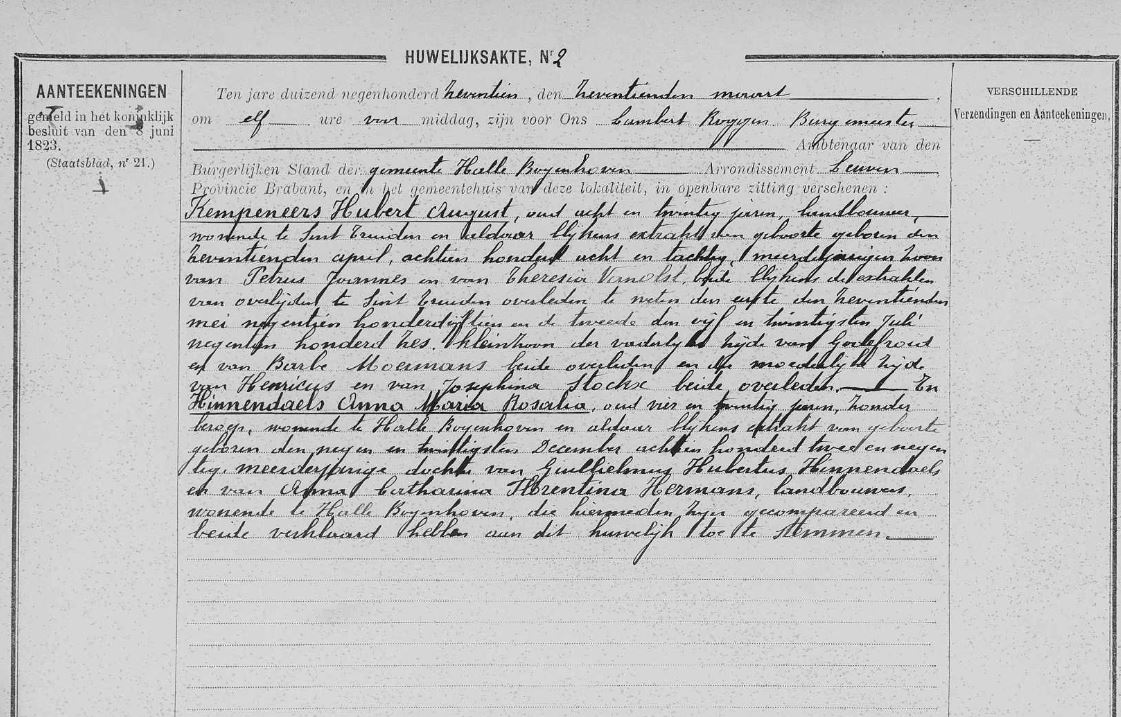 HUWELIJKSAKTE, Nr 2
AANTEEKENINGEN
gemeld in het koninklijk
besluit van den 8 juni
1823.
(Staatsblad, nr 21.)
VERSCHILLENDE
Verzendingen en Aanteekeningen,
Ten jare duizend negenhonderd zeventien, den zeventienden maart
om elf ure voor middag, zijn voor Ons Lambert Roggen Burgemeester
Ambtenaar van den
Burgerlijken Stand der gemeente Halle Boyenhoven Arrondissement Leuven
Provincie Brabant, en in het gemeentehuis van deze lokaliteit, in openbare zitting verschenen :
Kempeneers Hubert August, oud acht en twintig jaren, landbouwer,
wonende te Sint Truiden en aldaar blijkens extrakt van geboorte geboren den
zeventienden april, achtien honderd acht en tachtig, meerderjarigen zoon
van Petrus Joannes en van Theresia Vanolst, beide blijkens de extrakten
van overlijden te Sint Truiden overleden te weten den eerste den zeventienden
mei negentien honderd vijftien en de tweede den vijf en twintigsten Juli
negentien honderd zes. Kleinzoon der vaderlijke zijde van Godefroid
en van Barbe Moermans beide overleden en der moederlijke zijde
van Henricus en van Josephina Stockx beide overleden. En
Hinnendaels Anna Maria Rosalia, oud vier en twintig jaren, zonder
beroep, wonende te Halle Boyenhoven en aldaar blijkens extrakt van geboorte
geboren den negen en twintigsten December achtien honderd twee en negen
tig, meerderjarige dochter van Guilielmus Hubertus Hinnendaels
en van Anna Catharina Florentina Hermans, landbouwers,
wonende te Halle Boyenhoven, die hiermeden zijn gecompareerd en
beide verklaard hebben aan dit huwelijk toe te stemmen.